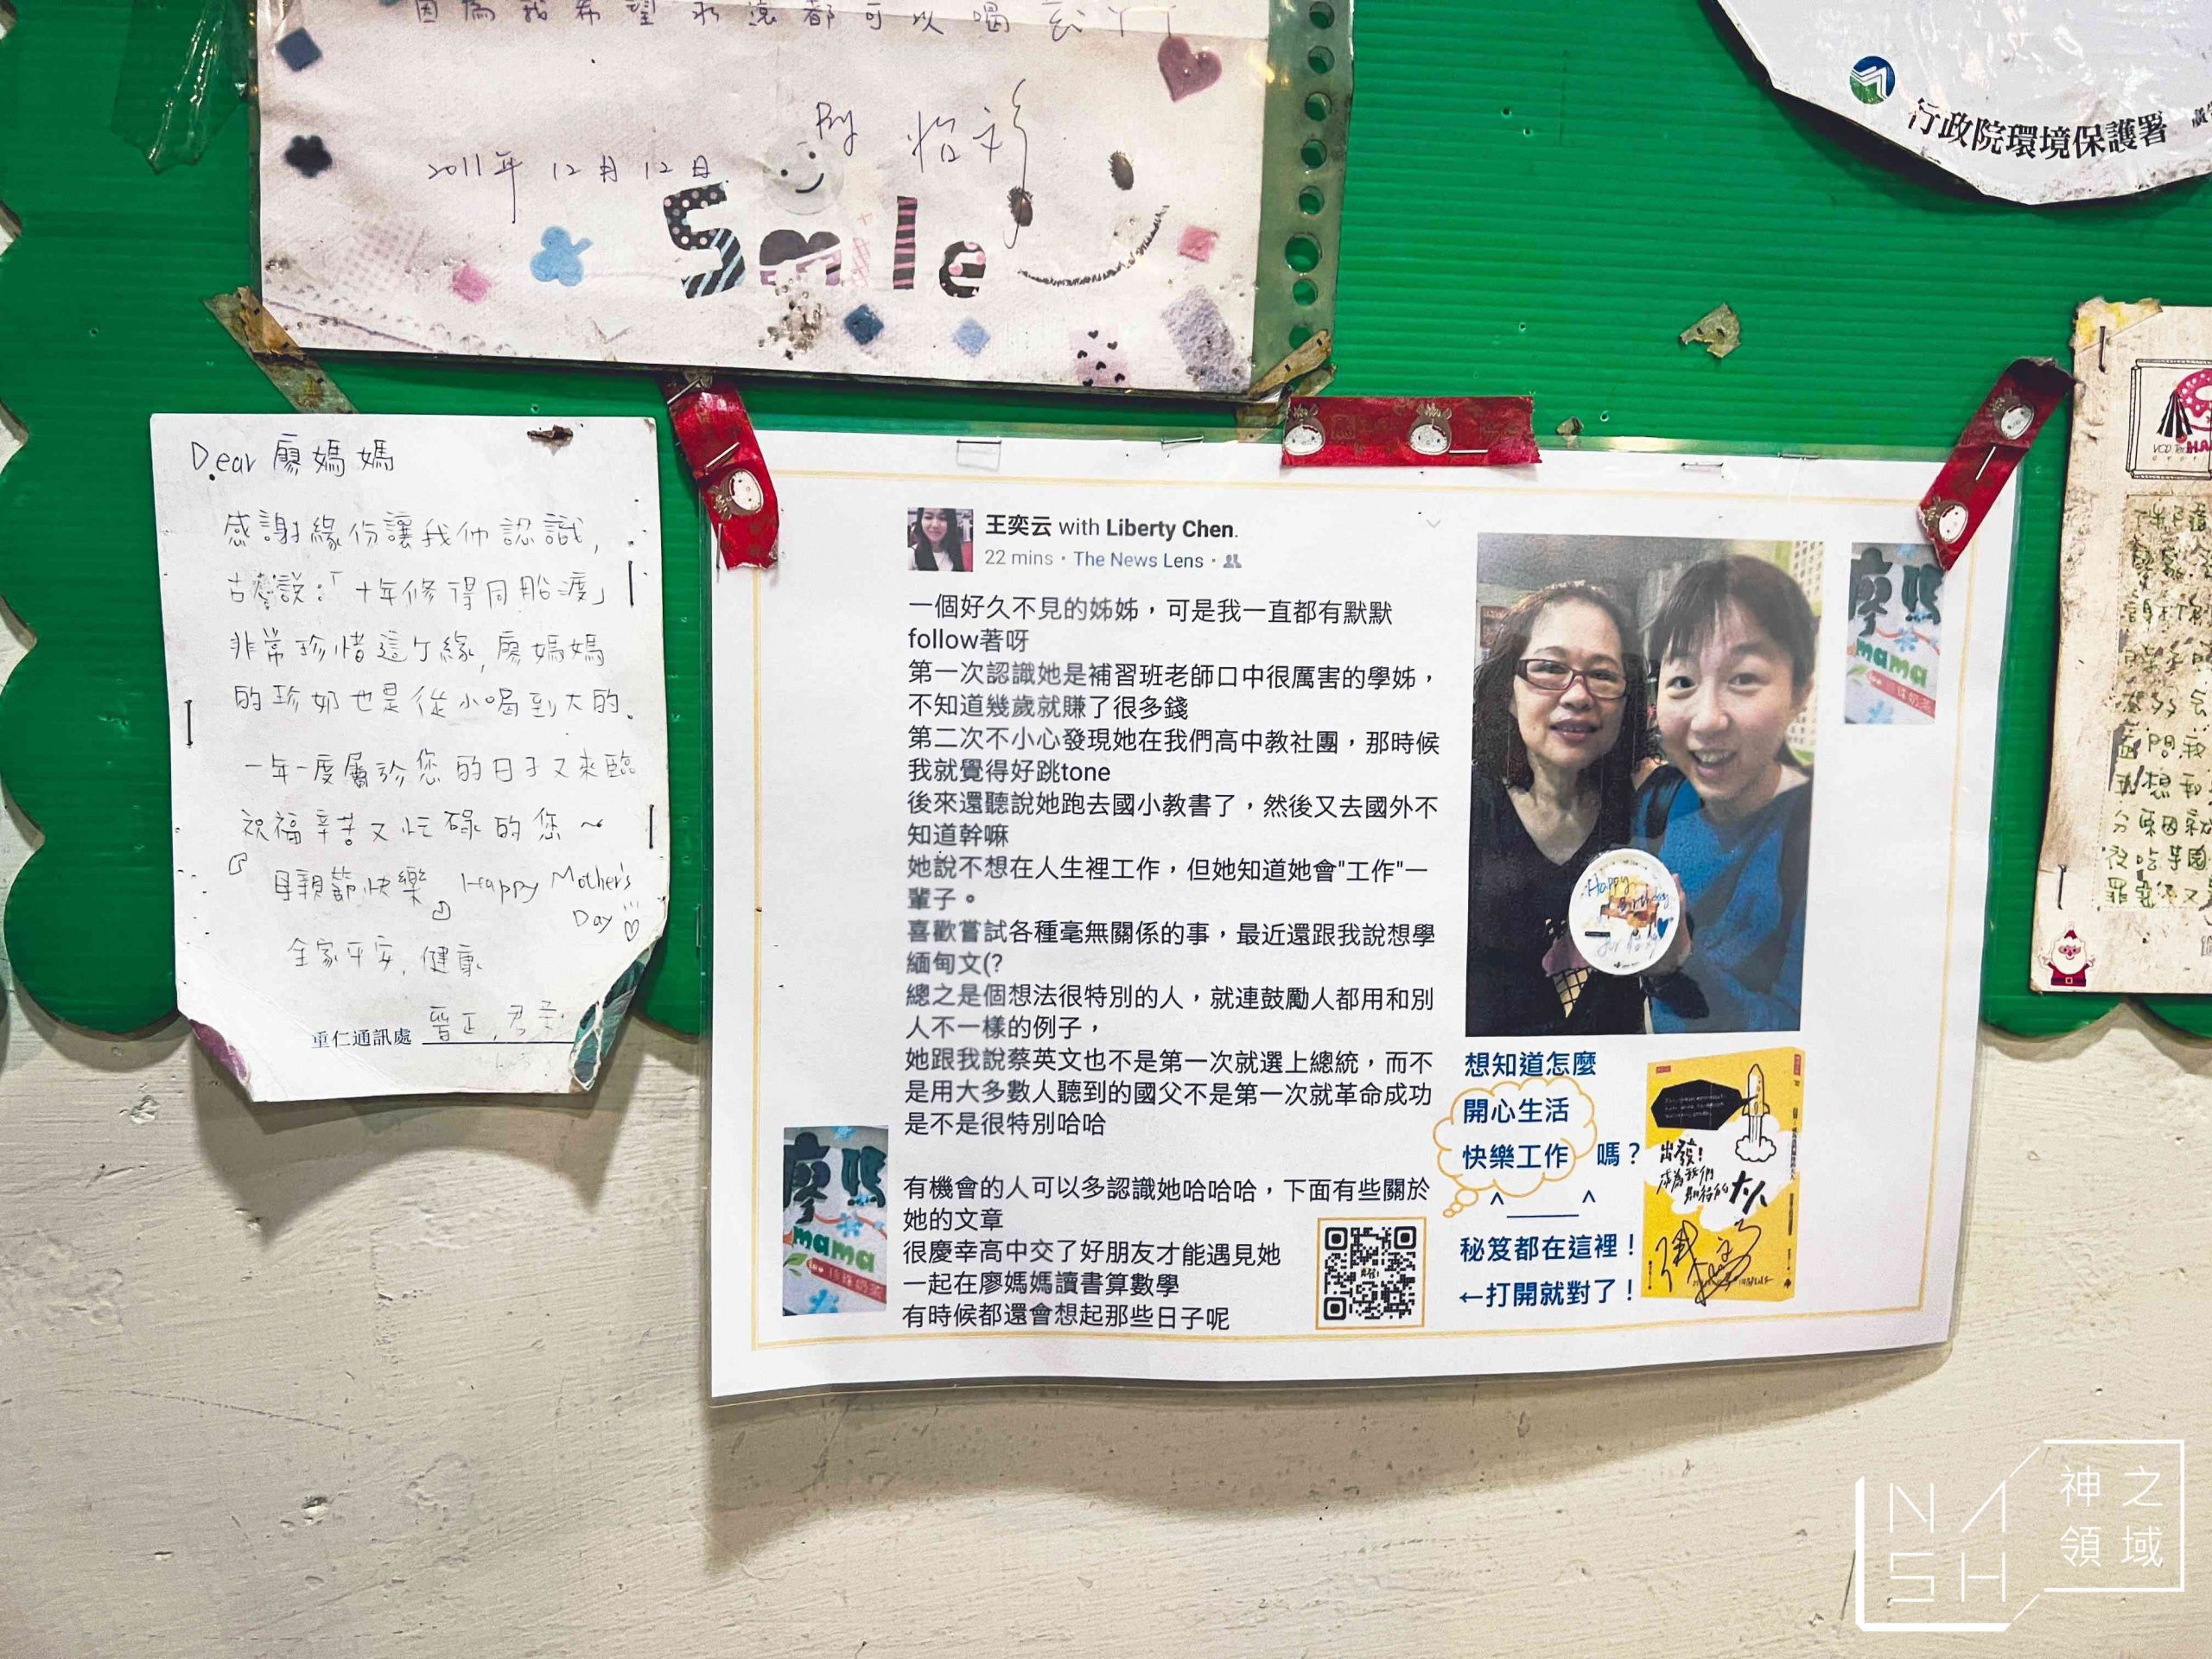 因為我希望永遠都可以喝
2011年 12月 12日
Smile
行政院環境保護署
Dear 廖媽媽
感謝緣份讓我們認識,
古書說:「十年修得同船渡」
非常珍惜這个緣,廖媽媽
的珍奶也是從小喝到大的.
一年一度屬於您的日子又來臨
祝福辛苦又忙碌的您~
『母親節快樂』 Happy Mother's
Day ♡
全家平安,健康
重仁通訊處
王奕云 with Liberty Chen.
22 mins · The News Lens ·
一個好久不見的姊姊，可是我一直都有默默
follow著呀
第一次認識她是補習班老師口中很厲害的學姊，
不知道幾歲就賺了很多錢
第二次不小心發現她在我們高中教社團，那時候
我就覺得好跳tone
後來還聽說她跑去國小教書了，然後又去國外不
知道幹嘛
她說不想在人生裡工作，但她知道她會"工作"一
輩子。
喜歡嘗試各種毫無關係的事，最近還跟我說想學
緬甸文(?
總之是個想法很特別的人，就連鼓勵人都用和別
人不一樣的例子，
她跟我說蔡英文也不是第一次就選上總統，而不
是用大多數人聽到的國父不是第一次就革命成功
是不是很特別哈哈
有機會的人可以多認識她哈哈哈，下面有些關於
她的文章
很慶幸高中交了好朋友才能遇見她
一起在廖媽媽讀書算數學
有時候都還會想起那些日子呢
Happy
Birthday
廖媽
mama
珍珠奶茶
想知道怎麼
開心生活
快樂工作 嗎？
^_____^
秘笈都在這裡！
←打開就對了！
出發!
成為我們
期待的大人
廖媽
mama
珍珠奶茶
NASH
神之
領域